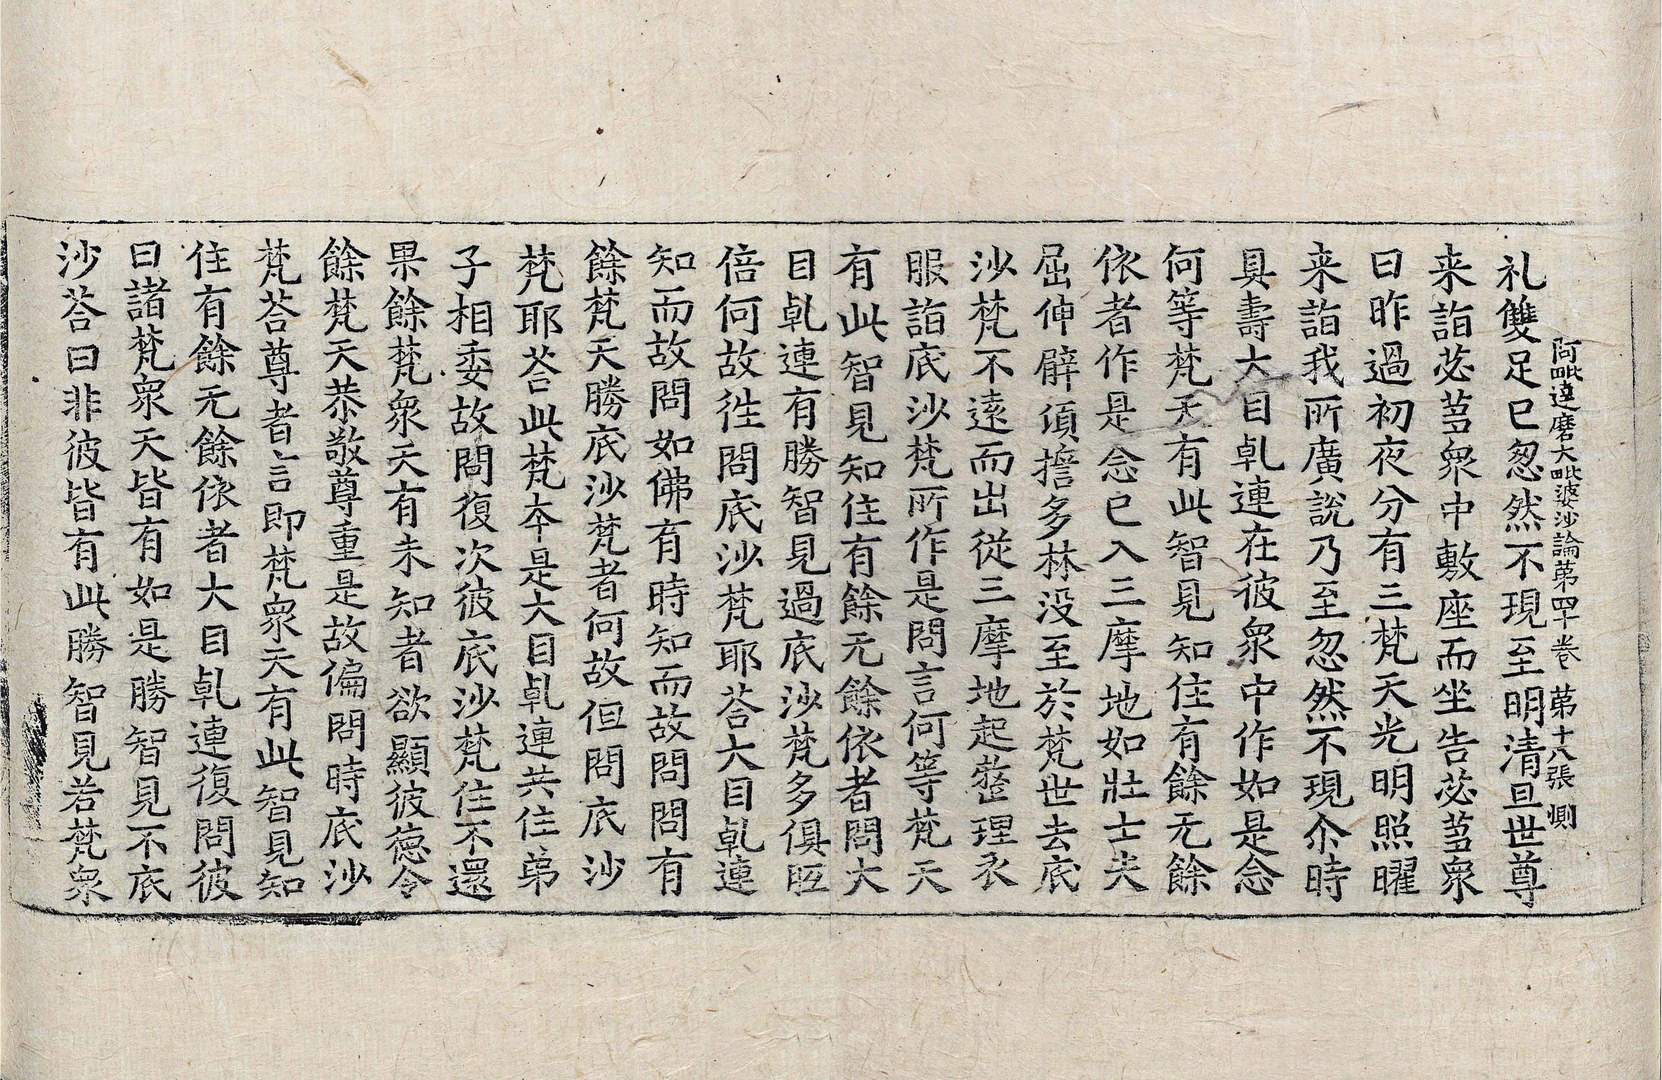 阿毗達磨大毗婆沙論第四十卷 第十八張 惻
礼雙足已忽然不現至明清旦世尊
来詣苾芻衆中敷座而坐告苾芻衆
曰昨過初夜分有三梵天光明照曜
来詣我所廣說乃至忽然不現尒時
具壽大目乹連在彼衆中作如是念
何等梵天有此智見知住有餘无餘
依者作是念已入三摩地如壯士夫
屈伸臂頃擔多林没至於梵世去底
沙梵不遠而出從三摩地起整理衣
服詣底沙梵所作是問言何等梵天
有此智見知住有餘无餘依者問大
目乹連有勝智見過底沙梵多俱胝
倍何故徃問底沙梵耶荅大目乹連
知而故問如佛有時知而故問問有
餘梵天勝底沙梵者何故但問底沙
梵耶荅此梵夲是大目乹連共住弟
子相委故問復次彼底沙梵住不還
果餘梵衆天有未知者欲顯彼德令
餘梵天恭敬尊重是故偏問時底沙
梵荅尊者言即梵衆天有此智見知
住有餘无餘依者大目乹連復問彼
曰諸梵衆天皆有如是勝智見不底
沙荅曰非彼皆有此勝智見若梵衆